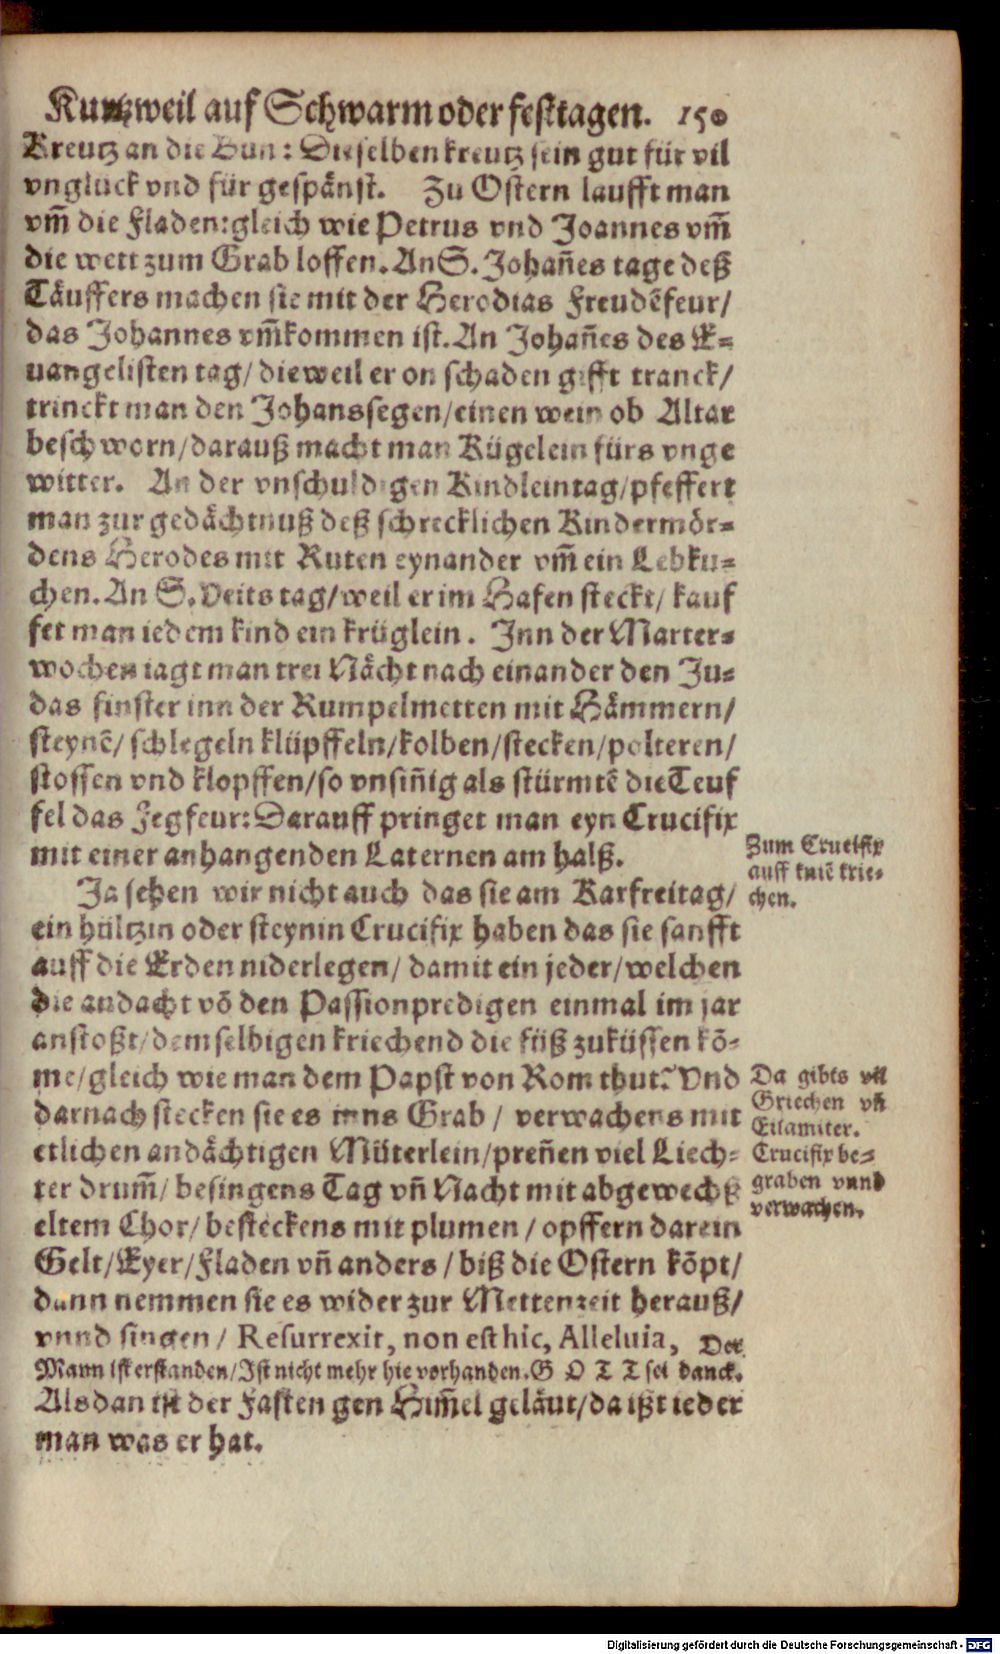 Kurtzweil auf Schwarm oder festtagen. 150
Kreutz an die Bün: Dieselben kreutz sein gut für vil
vnglück vnd für gespänst. Zu Ostern laufft man
vm̃ die Fladen: gleich wie Petrus vnd Joannes vm̃
die wett zum Grab loffen. An S. Johañes tage deß
Täuffers machen sie mit der Herodias Freudẽfeur/
das Johannes vm̃kommen ist. An Johañes des E⸗
uangelisten tag/ dieweil er on schaden gifft tranck/
trinckt man den Johanssegen/ einen wein ob Altar
beschworn/ darauß macht man Kügelein fürs vnge
witter. An der vnschuldigen Kindleintag/ pfeffert
man zur gedächtnuß deß schrecklichen Kindermör⸗
dens Herodes mit Ruten eynander vm̃ ein Lebku⸗
chen. An S. Veits tag/ weil er im Hafen steckt/ kauf
fet man iedem kind ein krüglein. Inn der Marter⸗
wochen iagt man trei Nächt nach einander den Ju⸗
das finster inn der Rumpelmetten mit Hämmern/
steynẽ/ schlegeln klüpffeln/ kolben/ stecken/ polteren/
stossen vnd klopffen/ so vnsiñig als stürmtẽ die Teuf
fel das Fegfeur: Darauff pringet man eyn Crucifix
mit einer anhangenden Laternen am halß.
Ja sehen wir nicht auch das sie am Karfreitag/
ein hültzin oder steynin Crucifix haben das sie sanfft
auff die Erden niderlegen/ damit ein jeder/ welchen
die andacht võ den Passionpredigen einmal im jar
anstoßt/ demselbigen kriechend die füß zuküssen kõ⸗
me/ gleich wie man dem Papst von Rom thut? Vnd
darnach stecken sie es inns Grab/ verwachens mit
etlichen andächtigen Müterlein/ preñen viel Liech⸗
ter drum̃/ besingens Tag vñ Nacht mit abgewechß
eltem Chor/ besteckens mit plumen/ opffern darein
Gelt/ Eyer/ Fladen vñ anders/ biß die Ostern kõpt/
dann nemmen sie es wider zur Mettenzeit herauß/
vnnd singen/ Resurrexit, non est hic, Alleluia, Der
Mann ist erstanden/ Ist nicht mehr hie vorhanden. G O T T sei danck.
Alsdan ist der Fasten gen Him̃el geläut/ da ißt ieder
man was er hat.
Zum Crucifix
auff kniẽ krie⸗
chen.
Da gibts vil
Griechen vñ
Eilamiter.
Crucifix be⸗
graben vnnd
verwachen.
Digitalisierung gefördert durch die Deutsche Forschungsgemeinschaft - DFG